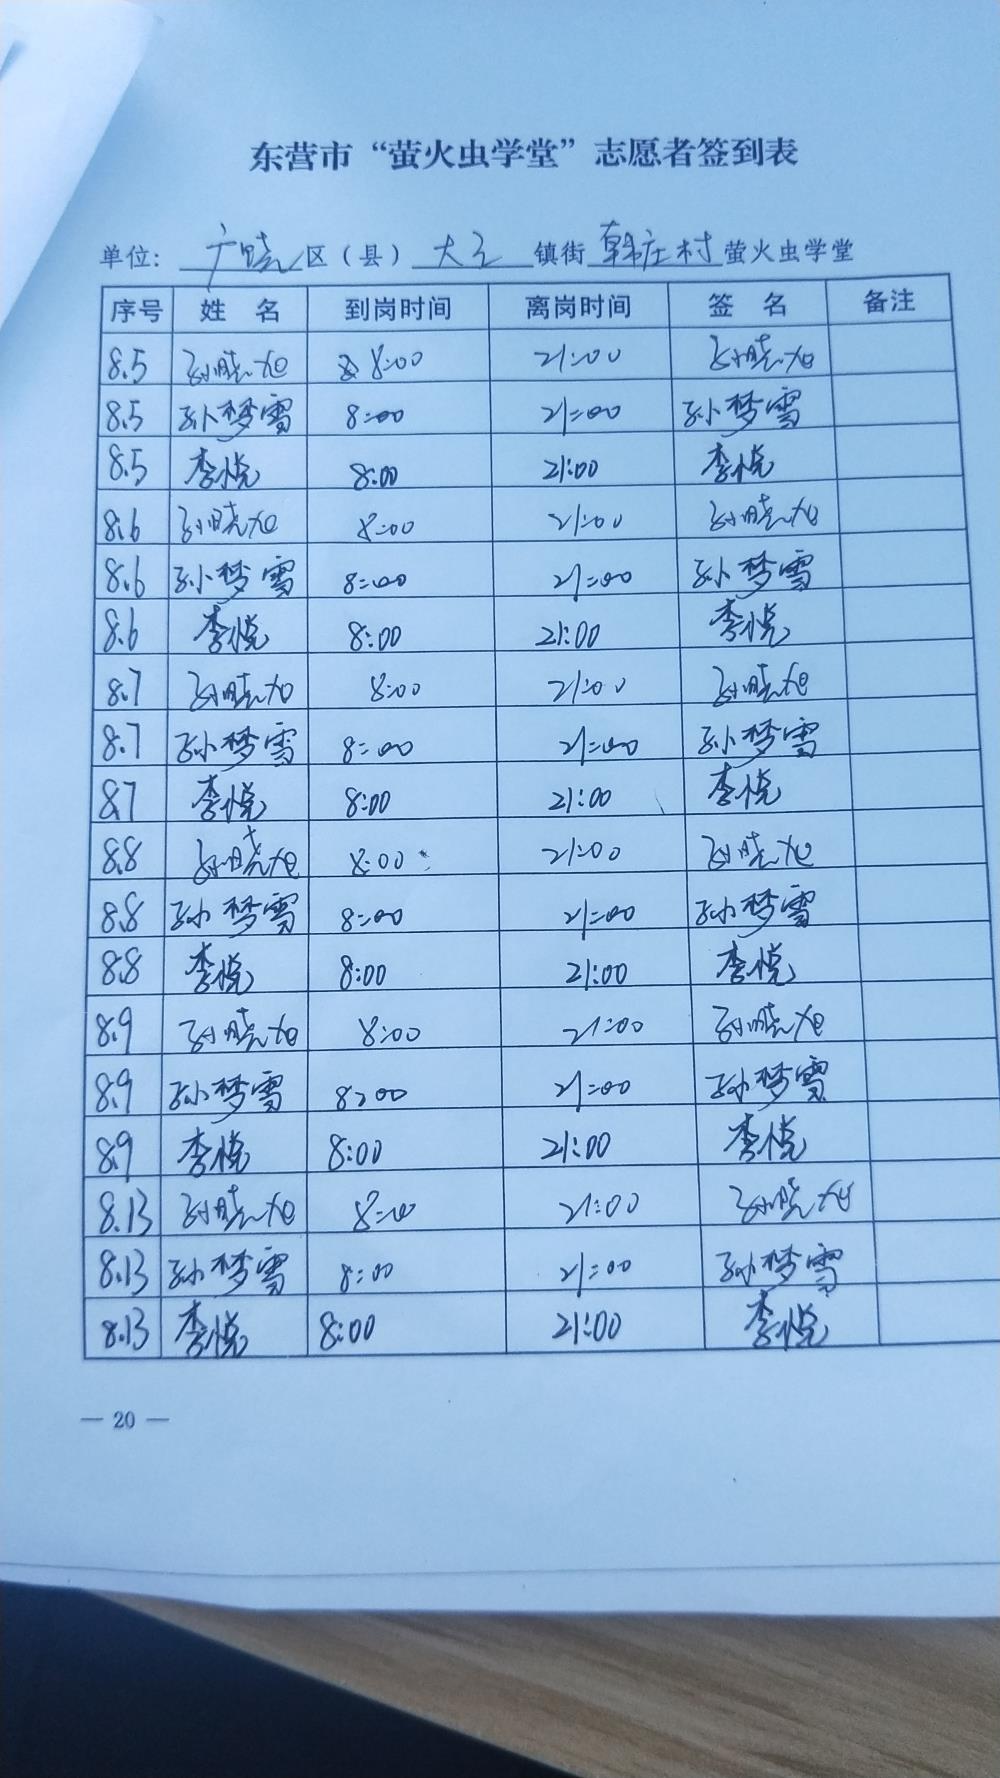 东营市“萤火虫学堂”志愿者签到表
单位：广饶区（县）大王镇街韩庄村萤火虫学堂
序号 姓 名 到岗时间 离岗时间 签 名 备注
8.5 孙晓旭 8:00 21:00 孙晓旭
8.5 孙梦雪 8:00 21:00 孙梦雪
8.5 李悦 8:00 21:00 李悦
8.6 孙晓旭 8:00 21:00 孙晓旭
8.6 孙梦雪 8:00 21:00 孙梦雪
8.6 李悦 8:00 21:00 李悦
8.7 孙晓旭 8:00 21:00 孙晓旭
8.7 孙梦雪 8:00 21:00 孙梦雪
8.7 李悦 8:00 21:00 李悦
8.8 孙晓旭 8:00 21:00 孙晓旭
8.8 孙梦雪 8:00 21:00 孙梦雪
8.8 李悦 8:00 21:00 李悦
8.9 孙晓旭 8:00 21:00 孙晓旭
8.9 孙梦雪 8:00 21:00 孙梦雪
8.9 李悦 8:00 21:00 李悦
8.13 孙晓旭 8:00 21:00 孙晓旭
8.13 孙梦雪 8:00 21:00 孙梦雪
8.13 李悦 8:00 21:00 李悦
— 20 —